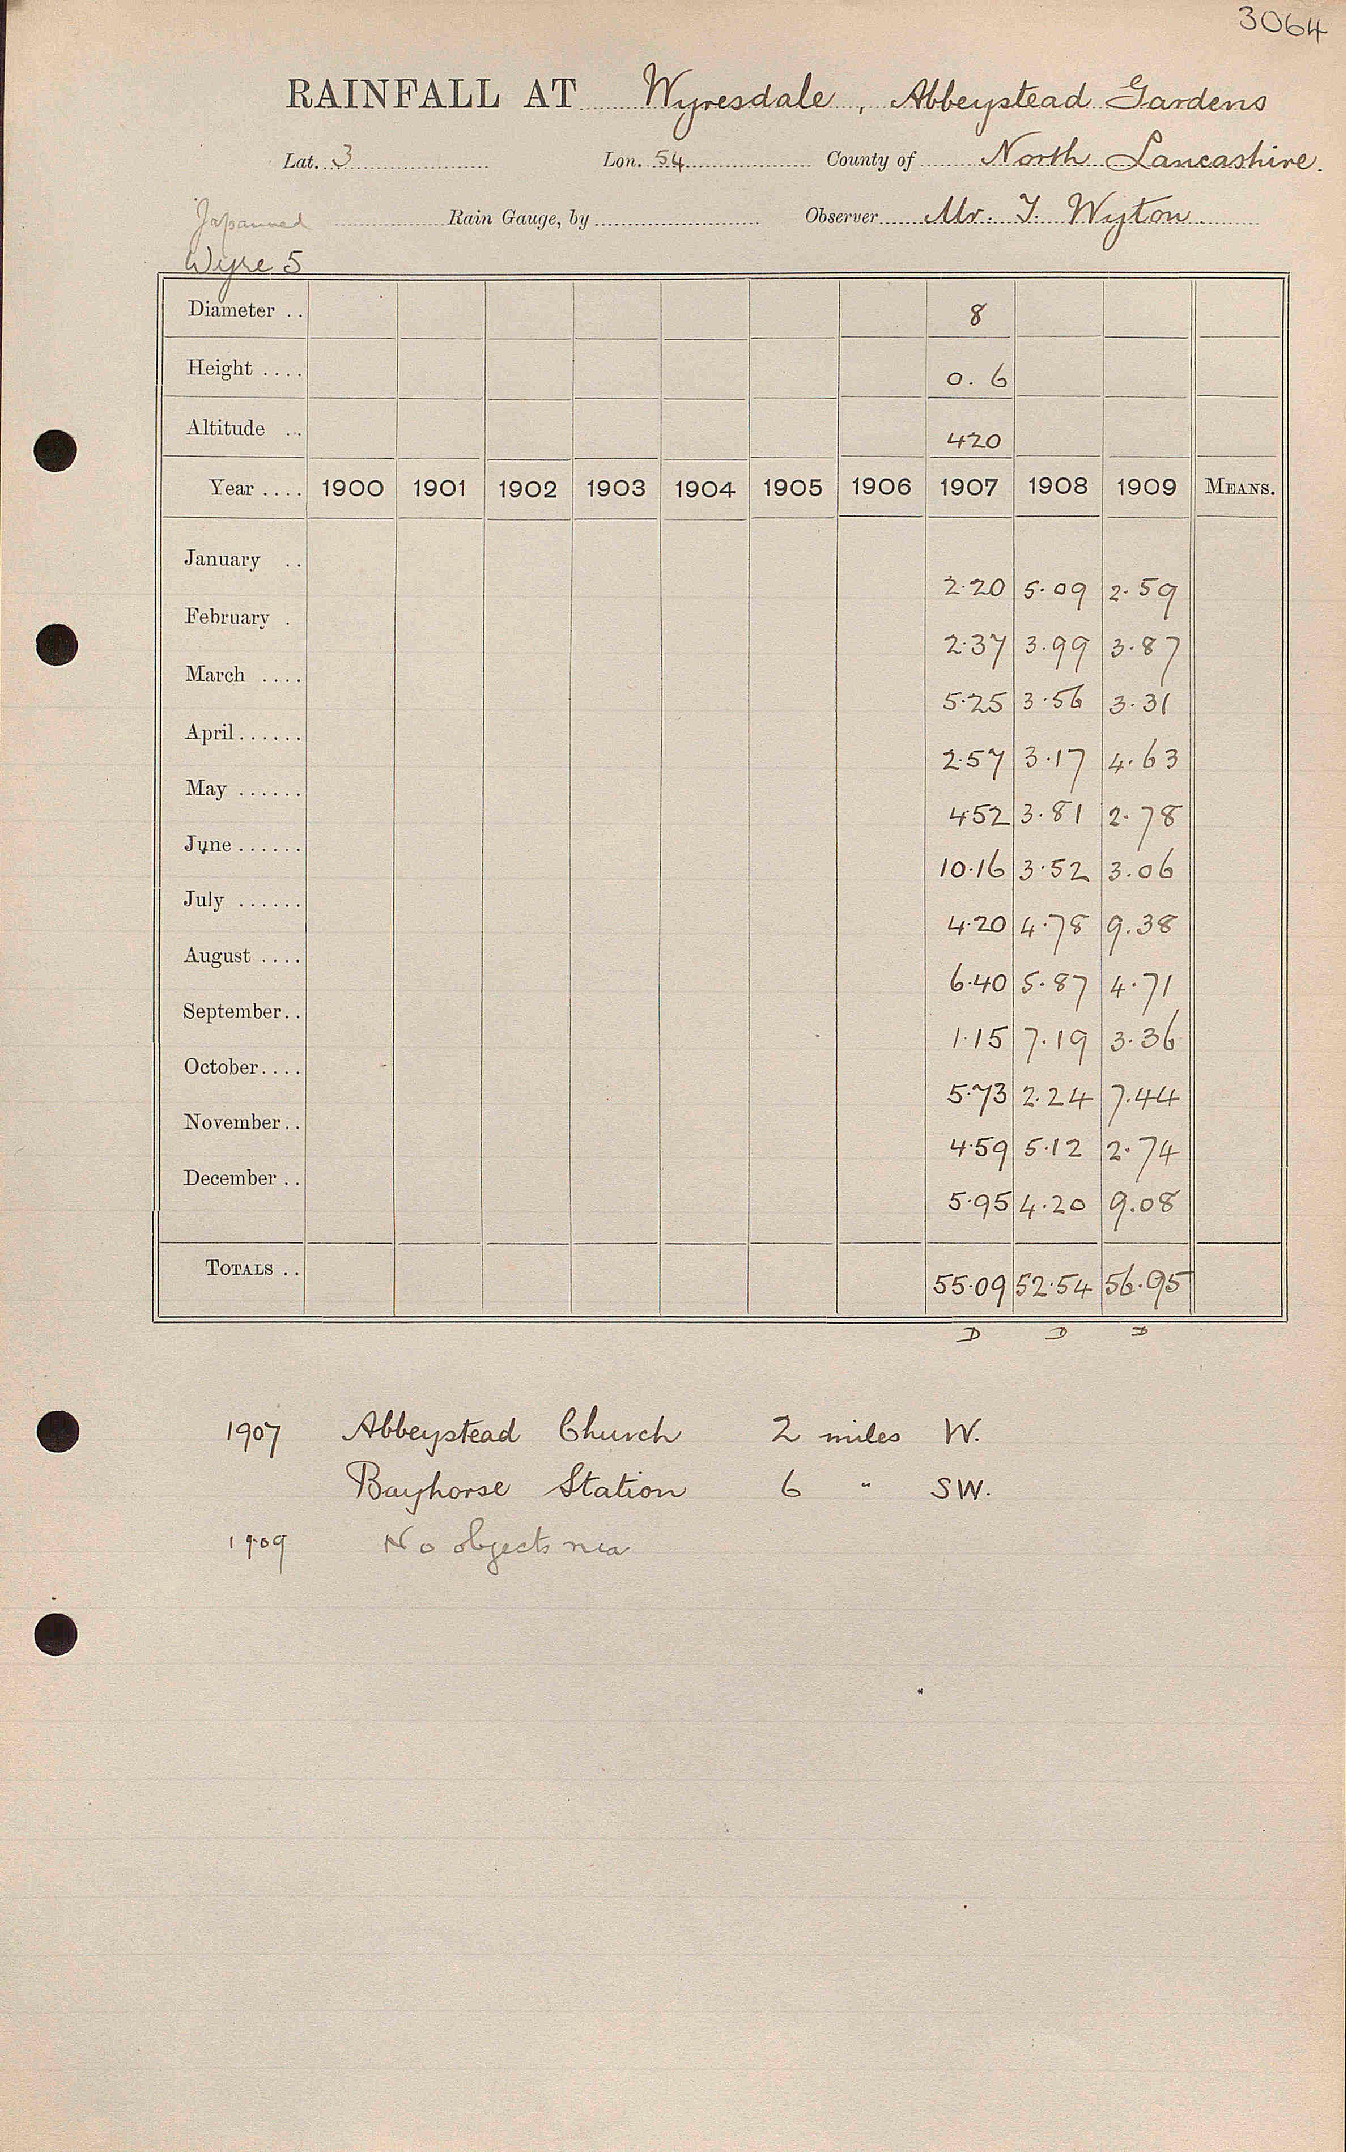 3064
RAINFALL AT Wyresdale, Abbeystead Gardens
Lat. 3 Lon. 54 County of North Lancashire.
Japanned Rain Gauge, by Observer Mr. J. Wyton
Wyre 5
Diameter .. 8
Height .... 0. 6
Altitude .. 420
Year .... 1900 1901 1902 1903 1904 1905 1906 1907 1908 1909 MEANS.
January .. 2.20 5.09 2.59
February . 2.37 3.99 3.87
March .... 5.25 3.56 3.31
April...... 2.57 3.17 4.63
May ...... 452 3.81 2.78
June...... 10.16 3.52 3.06
July ...... 4.20 4.78 9.38
August .... 6.40 5.87 4.71
September.. 1.15 7.19 3.36
October.... 5.73 2.24 7.44
November.. 4.59 5.12 2.74
December .. 5.95 4.20 9.08
TOTALS .. 55.09 52.54 56.95
D D D
1907 Abbeystead Church 2 miles W.
Bayhorse Station 6 " SW.
1909 No objects nea